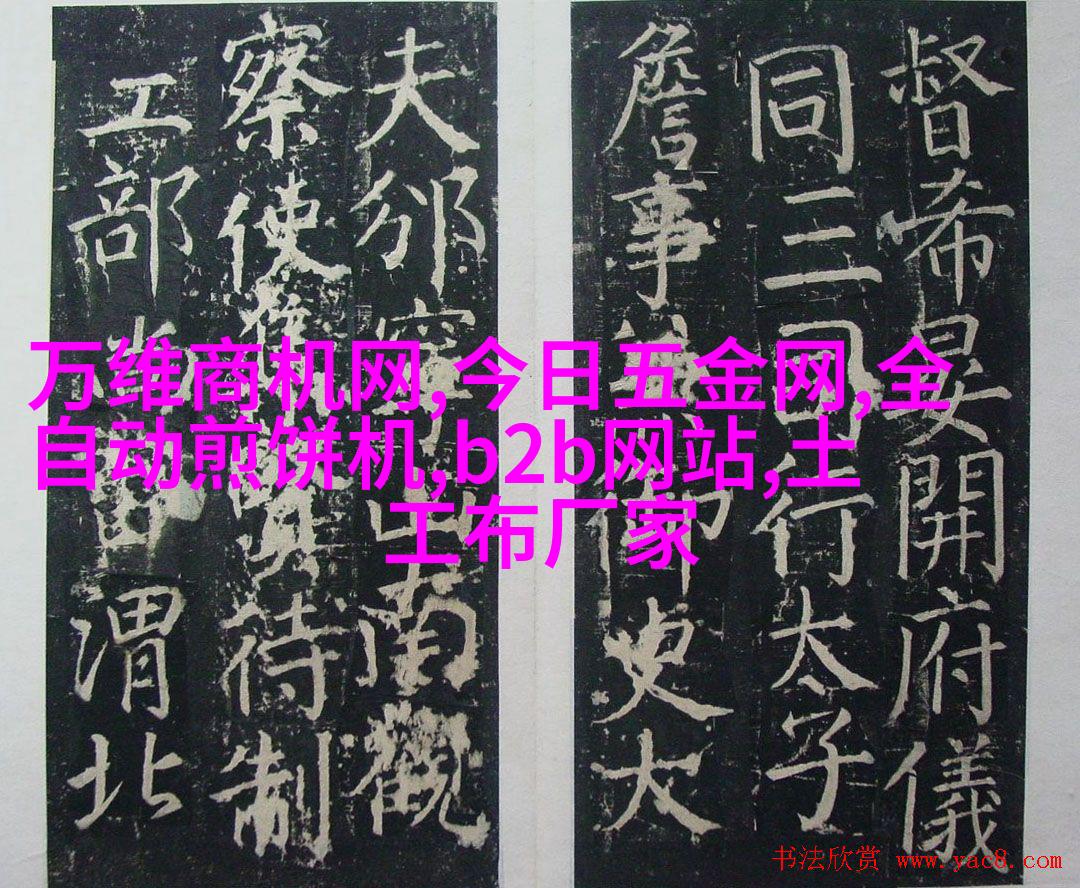 督希晏開府儀
同三司行太子
詹事兼御史大
夫邠寧山南觀
察使待制
工部渭北
万维商机网,今日五金网,全
自动煎饼机,b2b网站,土
工布厂家
书法欣赏 www.yac8.com